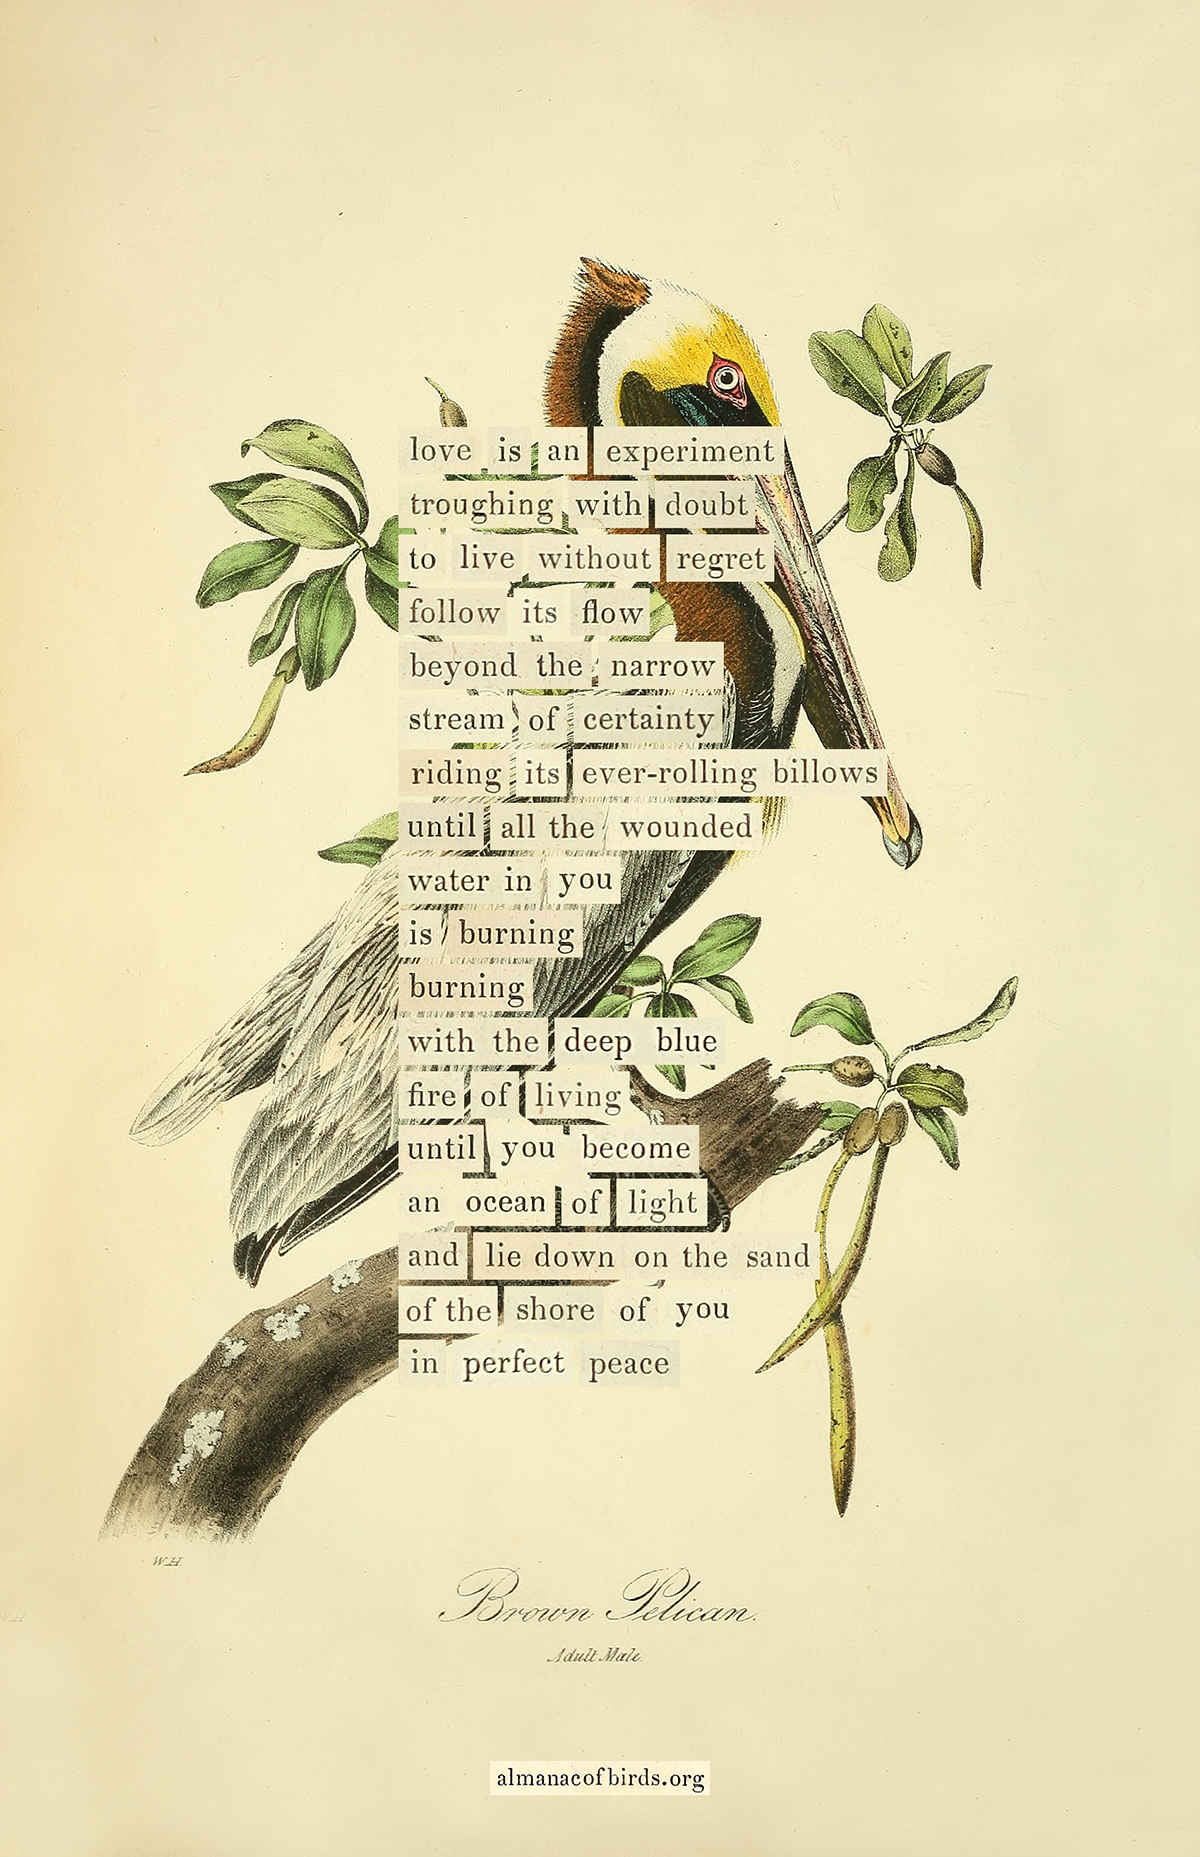 love is an experiment
troughing with doubt
to live without regret
follow its flow
beyond the narrow
stream of certainty
riding its ever-rolling billows
until all the wounded
water in you
is burning
burning
with the deep blue
fire of living
until you become
an ocean of light
and lie down on the sand
of the shore of you
in perfect peace
W.H.
Brown Pelican.
Adult Male.
almanacofbirds.org